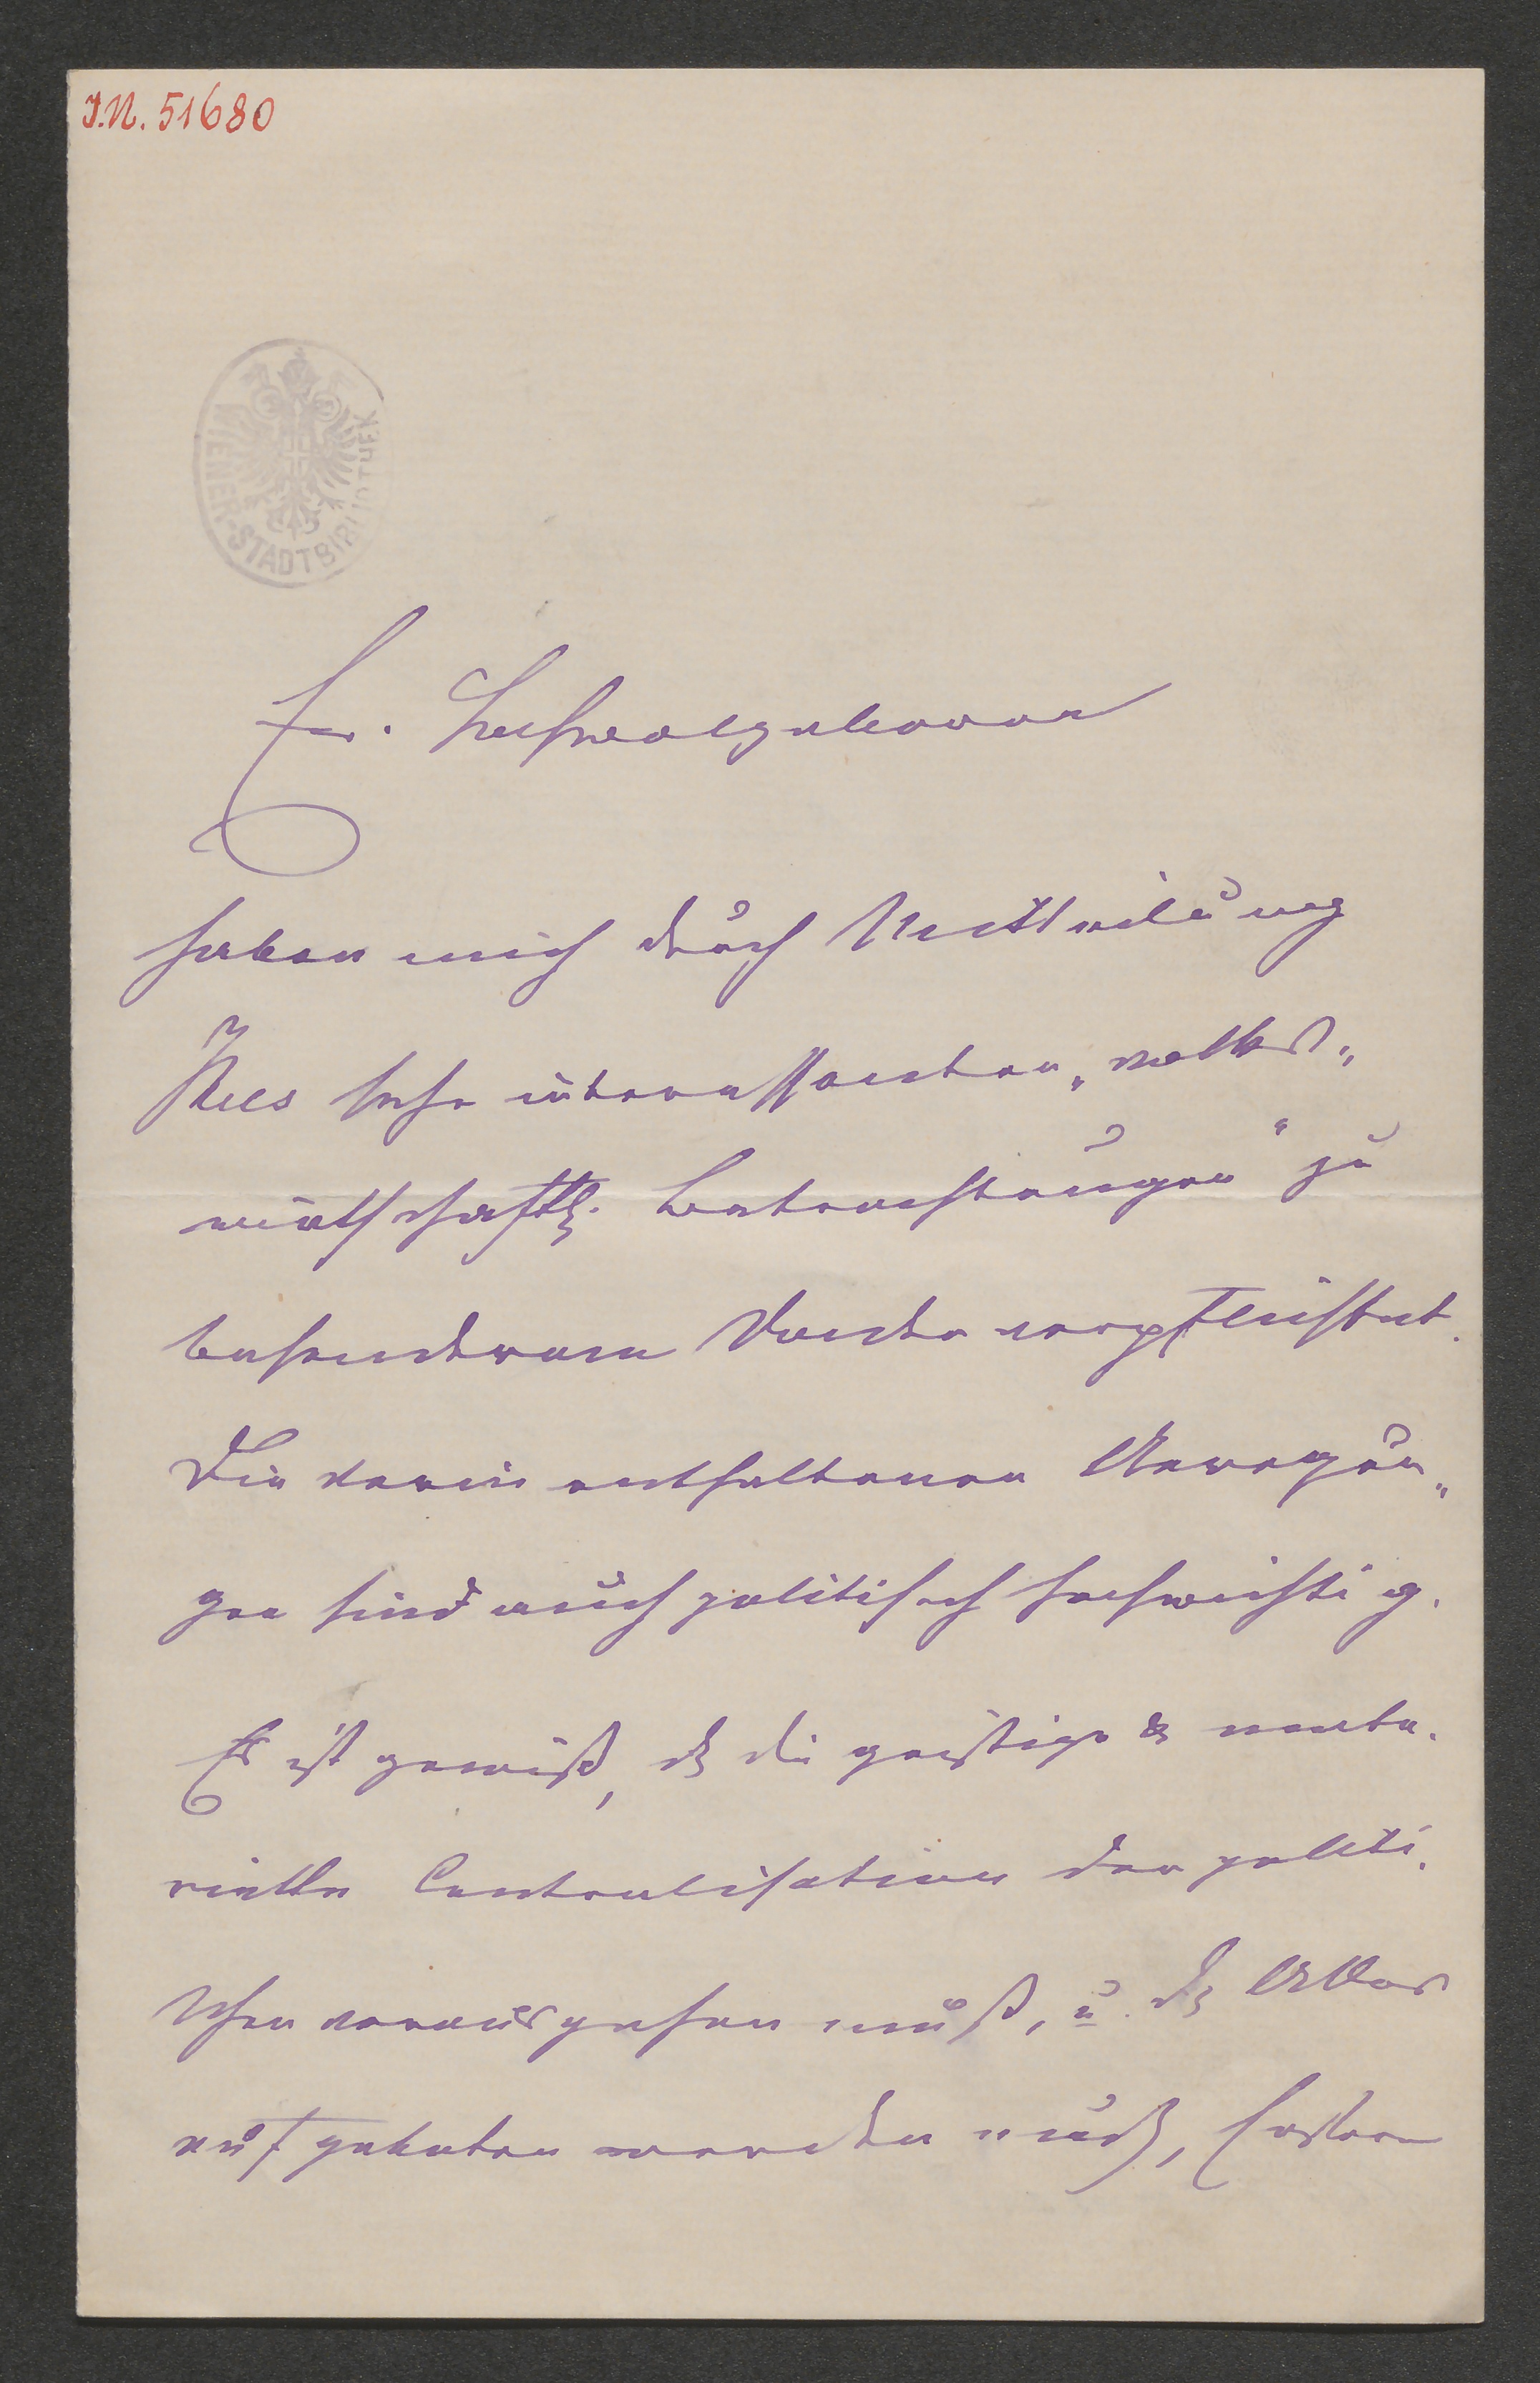 I.N. 51680
WIENER-STADTBIBLIOTHEK
Ew. Hochwolgeboren
haben mich durch Mittheilung
Ihres sehr interessanten „volks„
wirthschaftl. Betrachtungen" zu
besonderem Danke verpflichtet.
Die darin enthaltenen Anregun„
gen sind auch politisch hochwichtig.
Es ist gewiß, dß die geistige & mate.
rielle Centralisation der politi.
schen vorausgehen muß, u. dß Alles
aufgeboten werden muß, Erstere